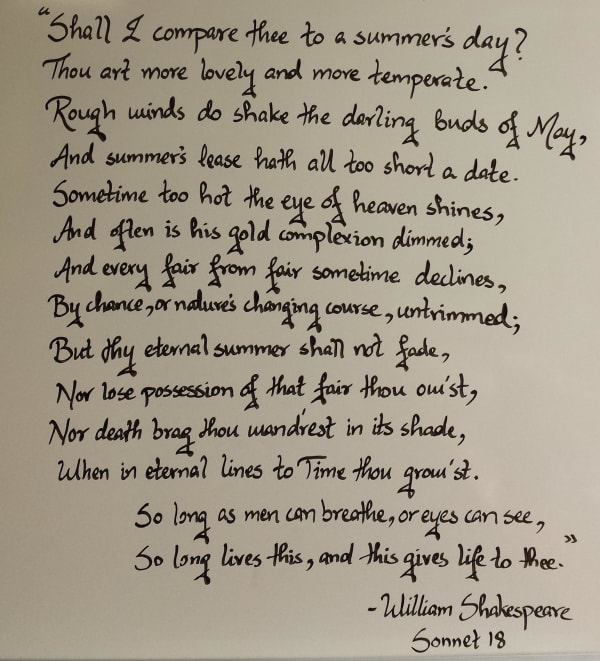 "Shall I compare thee to a summer's day?
Thou art more lovely and more temperate.
Rough winds do shake the darling buds of May,
And summer's lease hath all too short a date.
Sometime too hot the eye of heaven shines,
And often is his gold complexion dimmed;
And every fair from fair sometime declines,
By chance, or nature's changing course, untrimmed;
But thy eternal summer shall not fade,
Nor lose possession of that fair thou ow'st,
Nor death brag thou wand'rest in its shade,
When in eternal lines to Time thou grow'st.
So long as men can breathe, or eyes can see,
So long lives this, and this gives life to thee."
- William Shakespeare
Sonnet 18